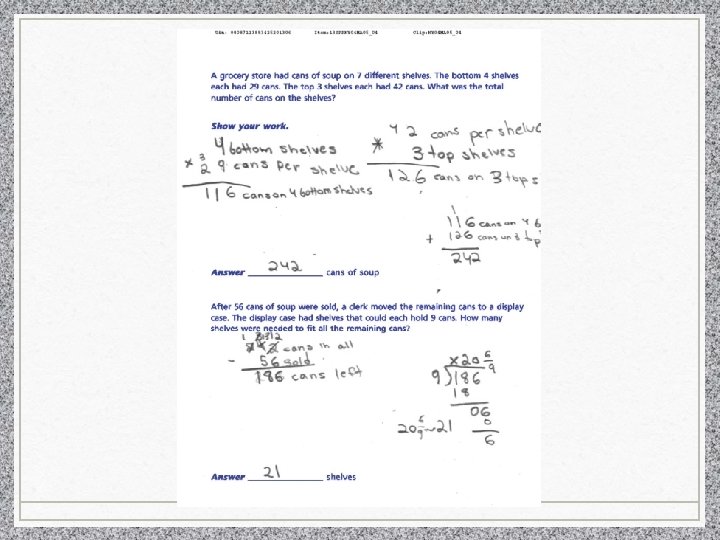 A grocery store had cans of soup on 7 different shelves. The bottom 4 shelves
each had 29 cans. The top 3 shelves each had 42 cans. What was the total
number of cans on the shelves?
Show your work.
4 bottom shelves
3
× 2 9 cans per shelve
116 cans on 4 bottom shelves
4 2 cans per shelve
* 3 top shelves
126 cans on 3 top s
1
116 cans on 4 b
+ 126 cans on 3 top
242
Answer 242 cans of soup
After 56 cans of soup were sold, a clerk moved the remaining cans to a display
case. The display case had shelves that could each hold 9 cans. How many
shelves were needed to fit all the remaining cans?
242 cans in all
- 56 sold
186 cans left
×20 6/9
9)186
18
06
0
6
20 6/9 ~ 21
Answer 21 shelves